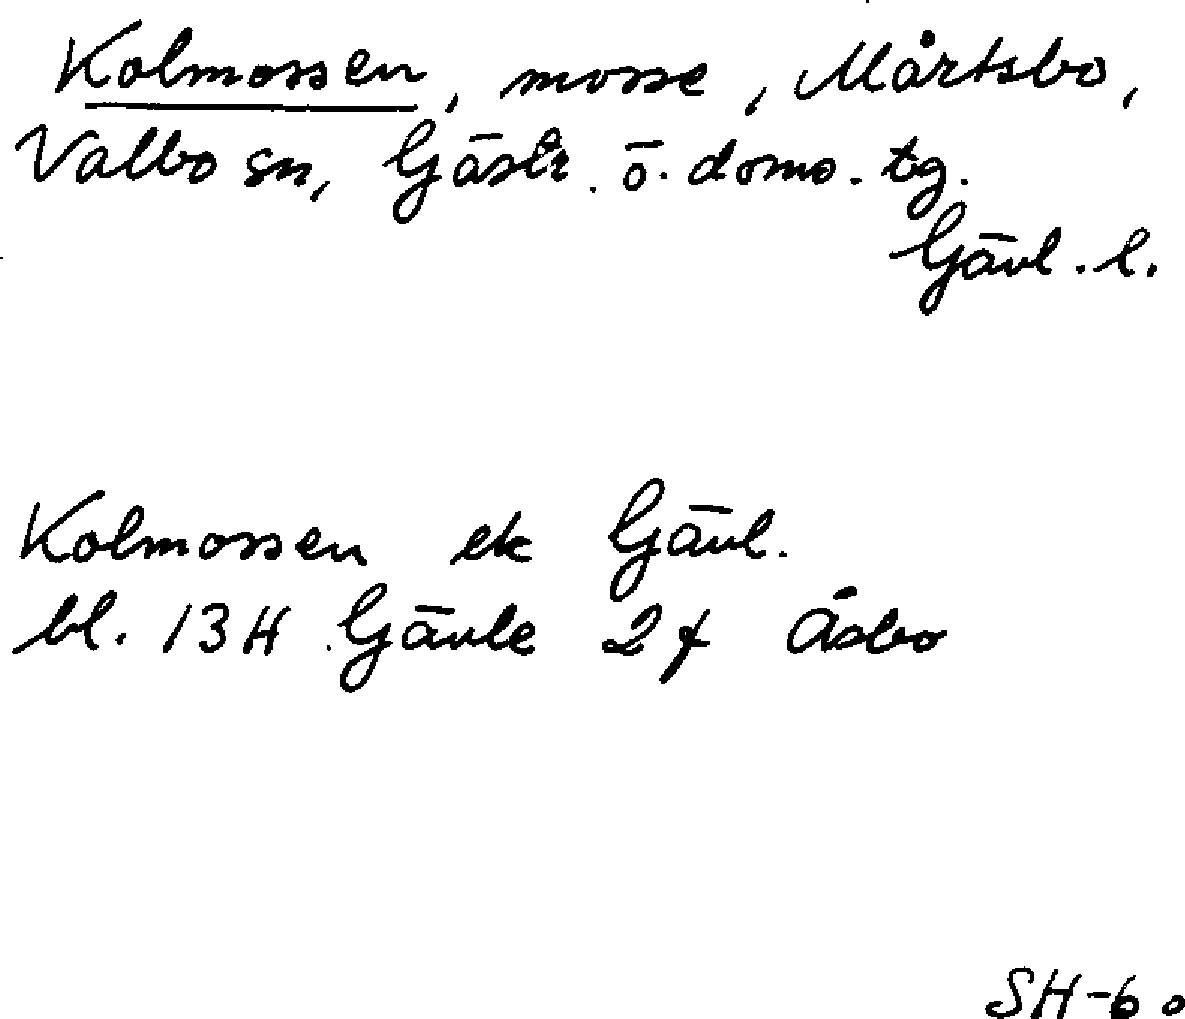 Kolmossen, mosse, Mårtsbo,
Valbo sn, Gästr. ö. doms. tg.
Gävl. l.
Kolmossen ek Gävl.
bl. 13H Gävle 2f Åsbo
SH-60